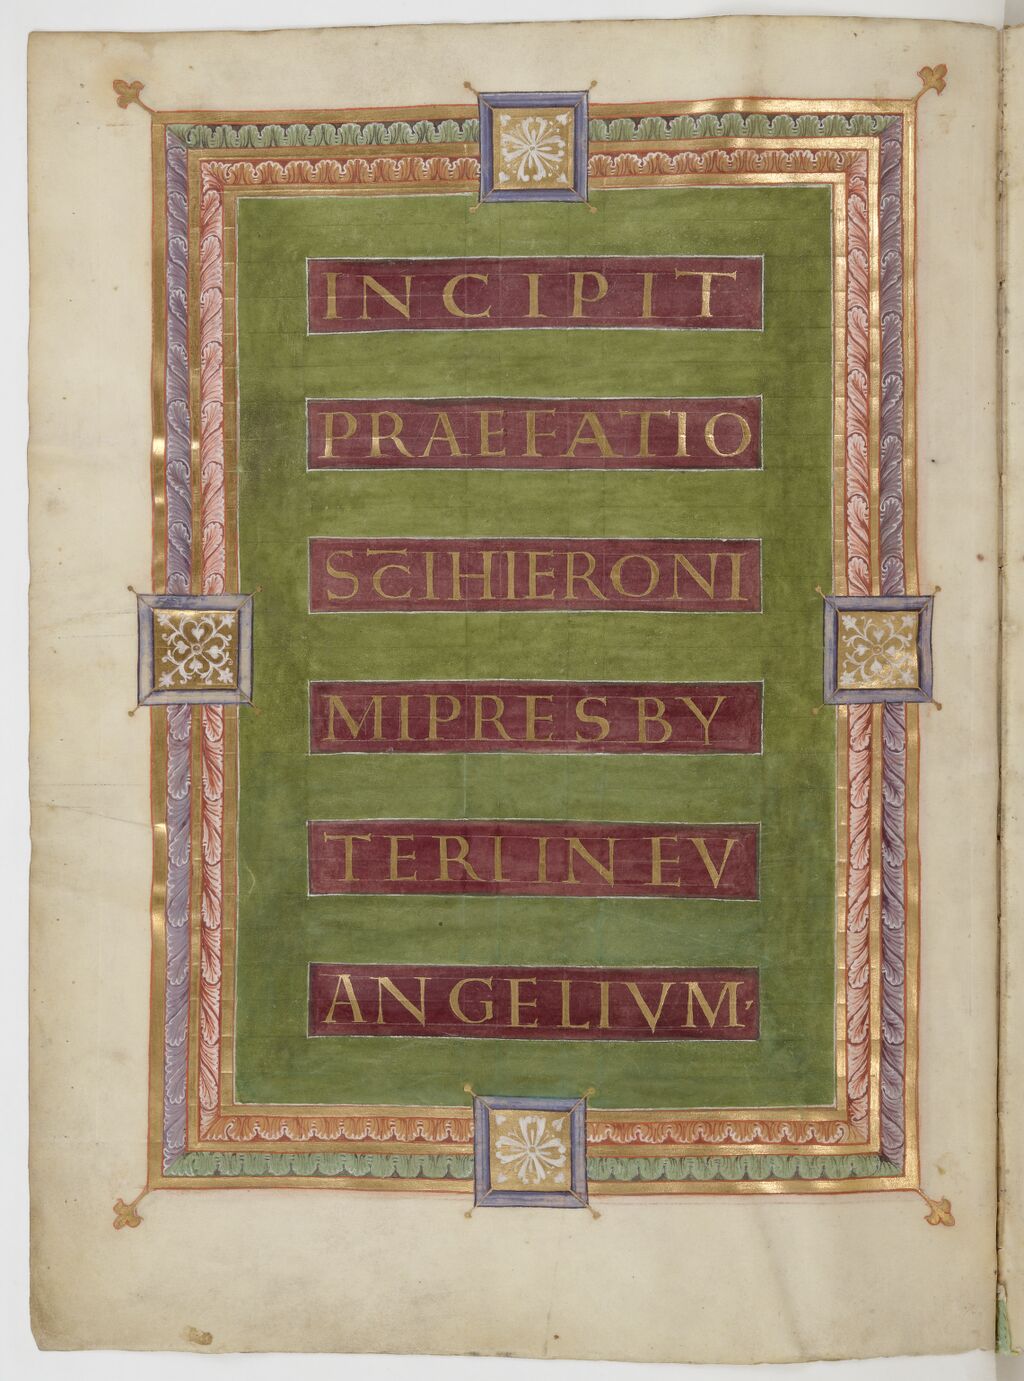 INCIPIT
PRAEFATIO
SC̅I HIERONI
MI PRESBY
TERI IN EV
ANGELIVM,